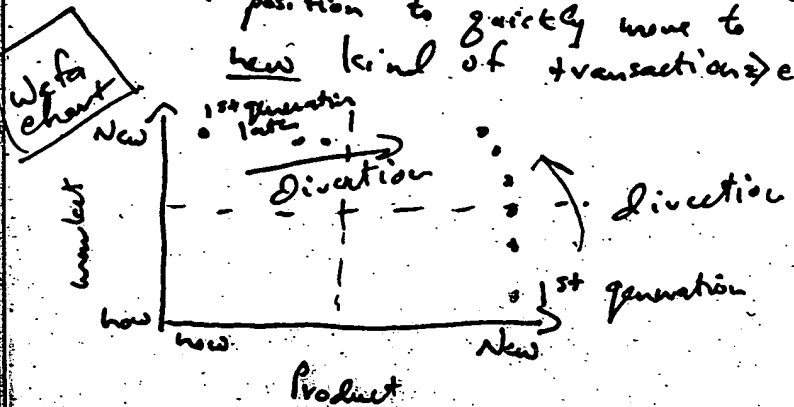 position to quickly move to
new kind of transactions => e
chart
New
1st generation
direction
market
direction
1st generation
now
now
New
Product